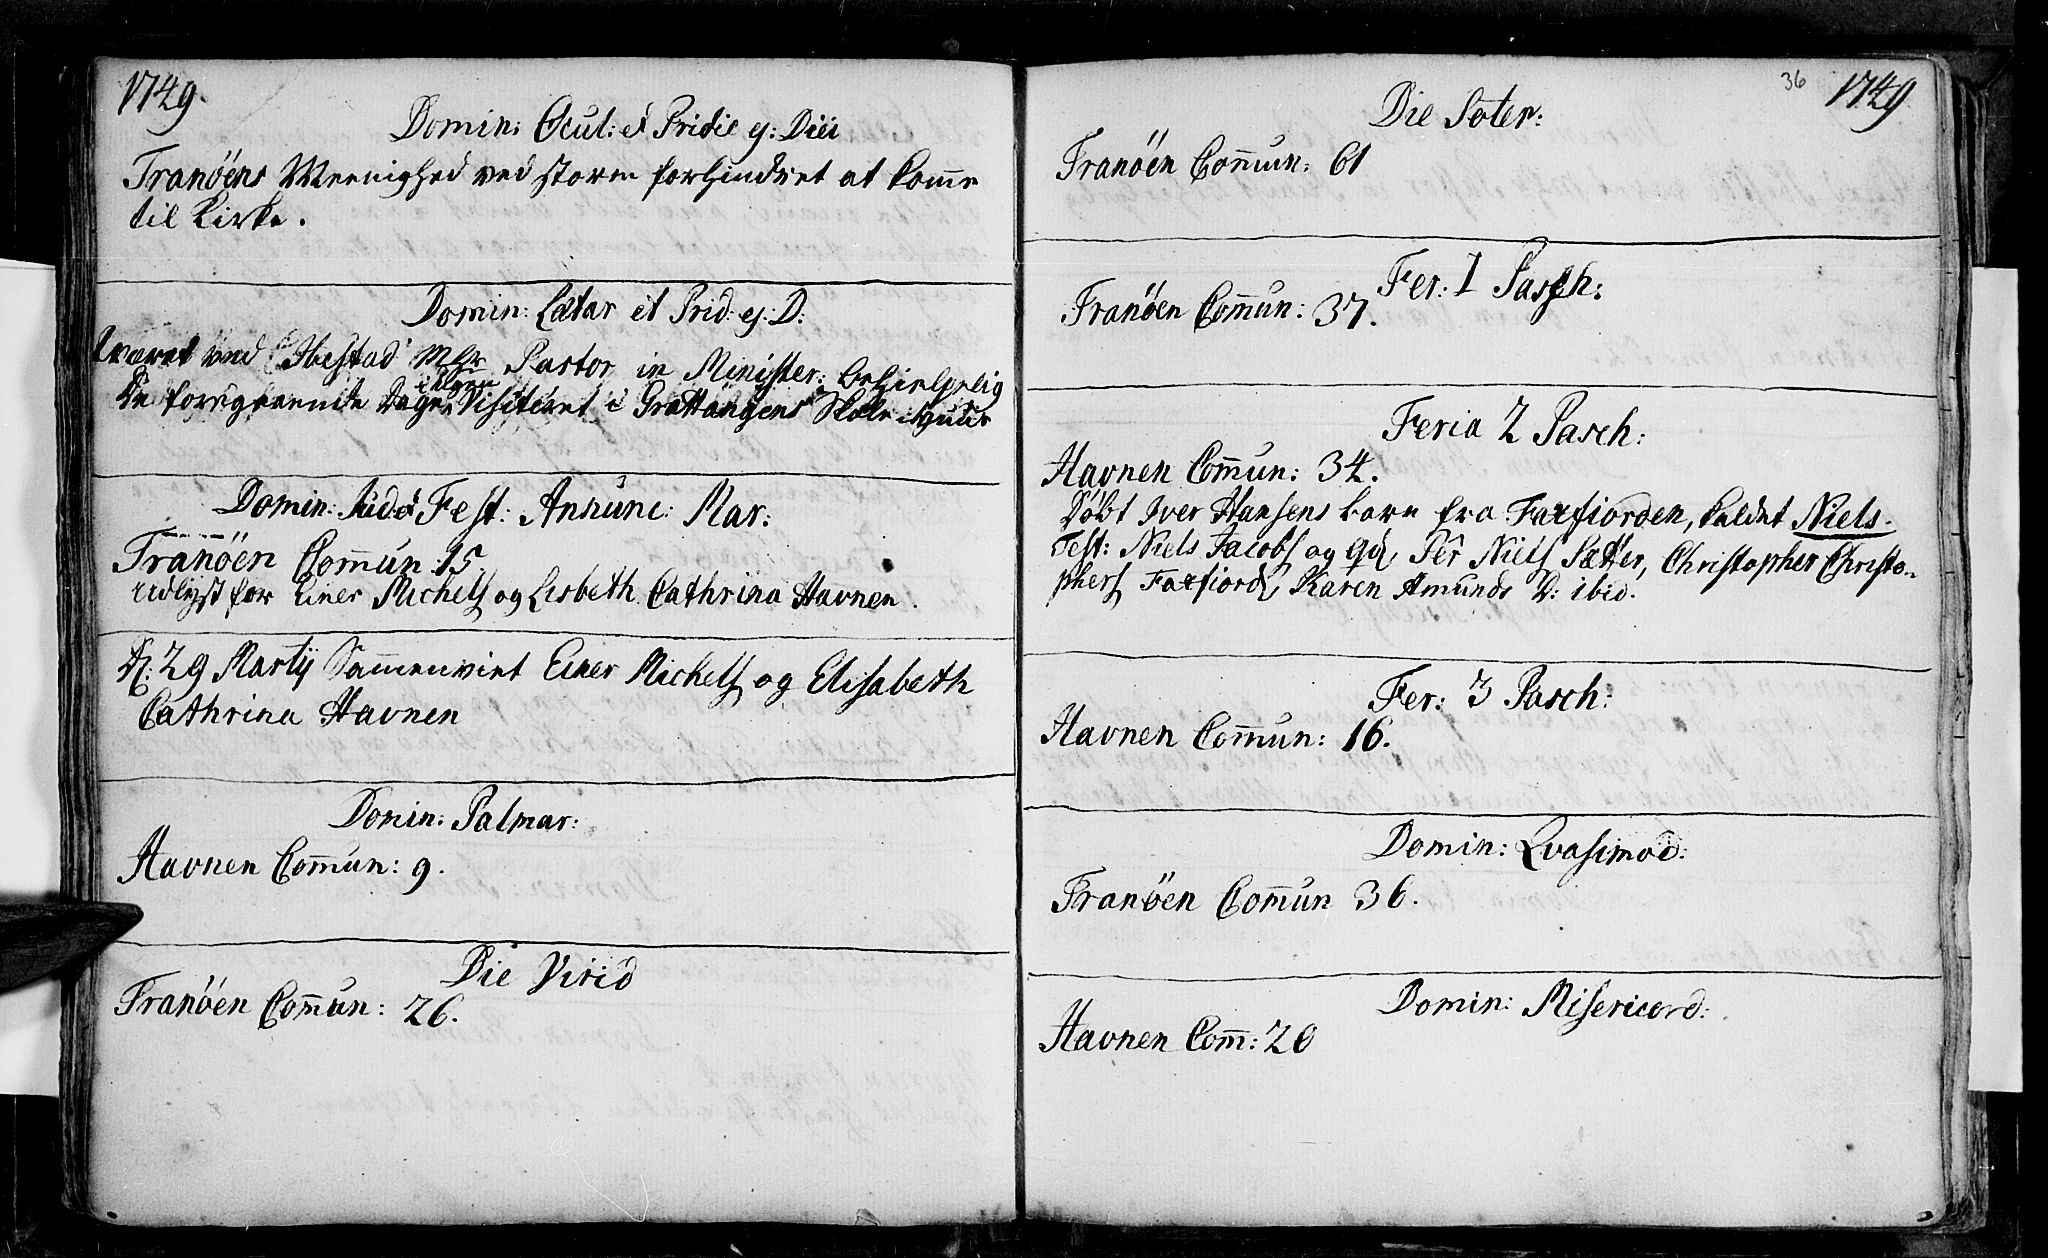 1749.
Domin: Ocul: et Pridie ej: Diei
Tranöens Meenighed ved storm forhindret at komme
til Kirke.
Domin: Lætar et Prid: ej: D:
været ved Ibestad Pastor in Minister: behielpelig
De foregaaende Dage Visiteret i Grattangens Skole
Domin: Jud: et Fest: Annunc: Mar:
Tranöen Com̄un 15.
udlyst for Einer Michels og Lisbeth Cathrina Havnen.
D: 29 Martij Sammenviet Einer Michels og Elisabeth
Cathrina Havnen
Domin: Palmar:
Havnen Com̄un: 9.
Die Virid
Tranöen Com̄un: 26.
36 1749
Die Soter:
Tranöen Com̄un: 61
Fer: 1 Pasch:
Tranöen Com̄un: 37.
Feria 2 Pasch:
Havnen Com̄un: 34.
Döbt Iver Hansens barn fra Faxfiorden, kaldet Niels.
Test: Niels Jacobs og Per Niels Sætter, Christopher Christo-
phers Faxfiord, Karen Amunds D: ibid.
Fer: 3 Pasch:
Havnen Com̄un: 16.
Domin: Qvasimod:
Tranöen Com̄un 36.
Domin: Misericord:
Havnen Com̄: 20